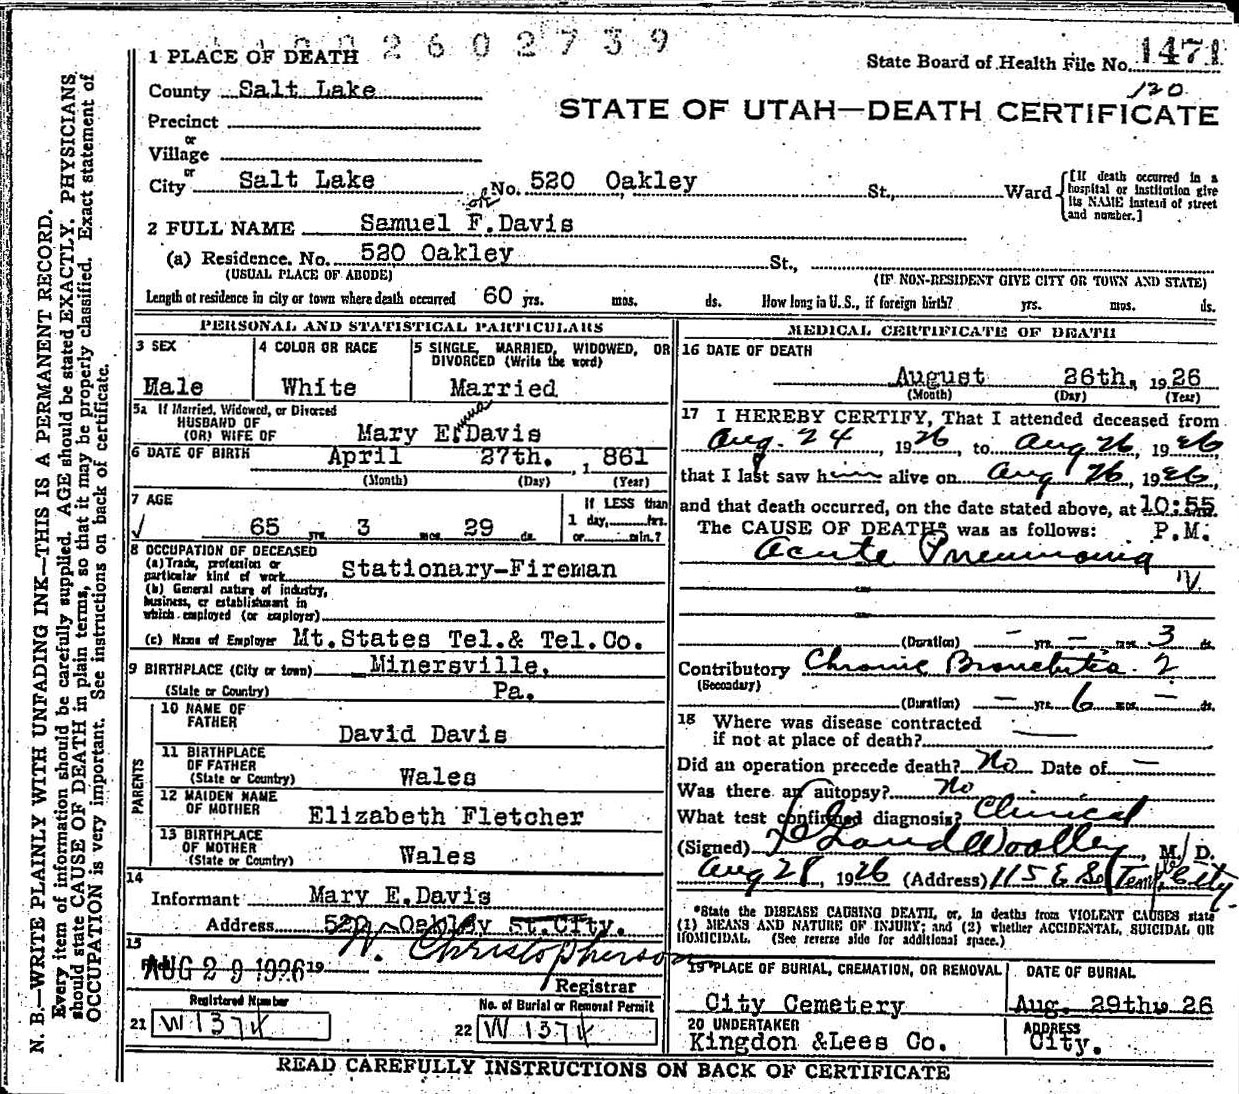 2602739
1 PLACE OF DEATH
State Board of Health File No. 1471
120
County Salt Lake
STATE OF UTAH—DEATH CERTIFICATE
Precinct
or
Village
or
City Salt Lake No. 520 Oakley St., Ward
[If death occurred in a hospital or institution give its NAME instead of street and number.]
2 FULL NAME Samuel F. Davis
(a) Residence. No. 520 Oakley St.,
(USUAL PLACE OF ABODE) (IF NON-RESIDENT GIVE CITY OR TOWN AND STATE)
Length of residence in city or town where death occurred 60 yrs. mos. ds. How long in U. S., if foreign birth? yrs. mos. ds.
PERSONAL AND STATISTICAL PARTICULARS
3 SEX
Male
4 COLOR OR RACE
White
5 SINGLE, MARRIED, WIDOWED, OR
DIVORCED (Write the word)
Married
5a If Married, Widowed, or Divorced
HUSBAND OF
(OR) WIFE OF Mary E. Davis
6 DATE OF BIRTH April 27th. , 1 861
(Month) (Day) (Year)
7 AGE
65 yrs. 3 mos. 29 ds.
If LESS than
1 day, hrs.
or min.?
8 OCCUPATION OF DECEASED
(a) Trade, profession or
particular kind of work Stationary-Fireman
(b) General nature of industry,
business, or establishment in
which employed (or employer)
(c) Name of Employer Mt.States Tel.& Tel.Co.
9 BIRTHPLACE (City or town) Minersville,
(State or Country) Pa.
PARENTS
10 NAME OF
FATHER David Davis
11 BIRTHPLACE
OF FATHER
(State or Country) Wales
12 MAIDEN NAME
OF MOTHER Elizabeth Fletcher
13 BIRTHPLACE
OF MOTHER
(State or Country) Wales
14
Informant Mary E.Davis
Address 520 Oakley St.City.
15
AUG 29 1926 19 Christopherson
Registrar
Registered Number
21 W1374
No. of Burial or Removal Permit
22 W1374
MEDICAL CERTIFICATE OF DEATH
16 DATE OF DEATH
August 26th, 1926
(Month) (Day) (Year)
17 I HEREBY CERTIFY, That I attended deceased from
Aug. 24, 1926, to Aug 26, 1926
that I last saw him alive on Aug 26, 1926,
and that death occurred, on the date stated above, at 10:55
The CAUSE OF DEATH* was as follows: P.M.
Acute Pneumonia
(Duration) — yrs. — mos. 3 ds.
Contributory Chronic Bronchitis
(Secondary)
(Duration) — yrs. 6 mos. — ds.
18 Where was disease contracted
if not at place of death?
Did an operation precede death? No Date of —
Was there an autopsy? No
What test confirmed diagnosis? Clinical
(Signed) Woolley, M. D.
Aug 28, 1926 (Address) 115 E So Temple City
*State the DISEASE CAUSING DEATH, or, in deaths from VIOLENT CAUSES state
(1) MEANS AND NATURE OF INJURY; and (2) whether ACCIDENTAL, SUICIDAL OR
HOMICIDAL. (See reverse side for additional space.)
19 PLACE OF BURIAL, CREMATION, OR REMOVAL
City Cemetery
DATE OF BURIAL
Aug. 29th 26
20 UNDERTAKER
Kingdon &Lees Co.
ADDRESS
City.
READ CAREFULLY INSTRUCTIONS ON BACK OF CERTIFICATE
N. B.—WRITE PLAINLY WITH UNFADING INK—THIS IS A PERMANENT RECORD.
Every item of information should be carefully supplied. AGE should be stated EXACTLY. PHYSICIANS
should state CAUSE OF DEATH in plain terms, so that it may be properly classified. Exact statement of
OCCUPATION is very important. See instructions on back of certificate.